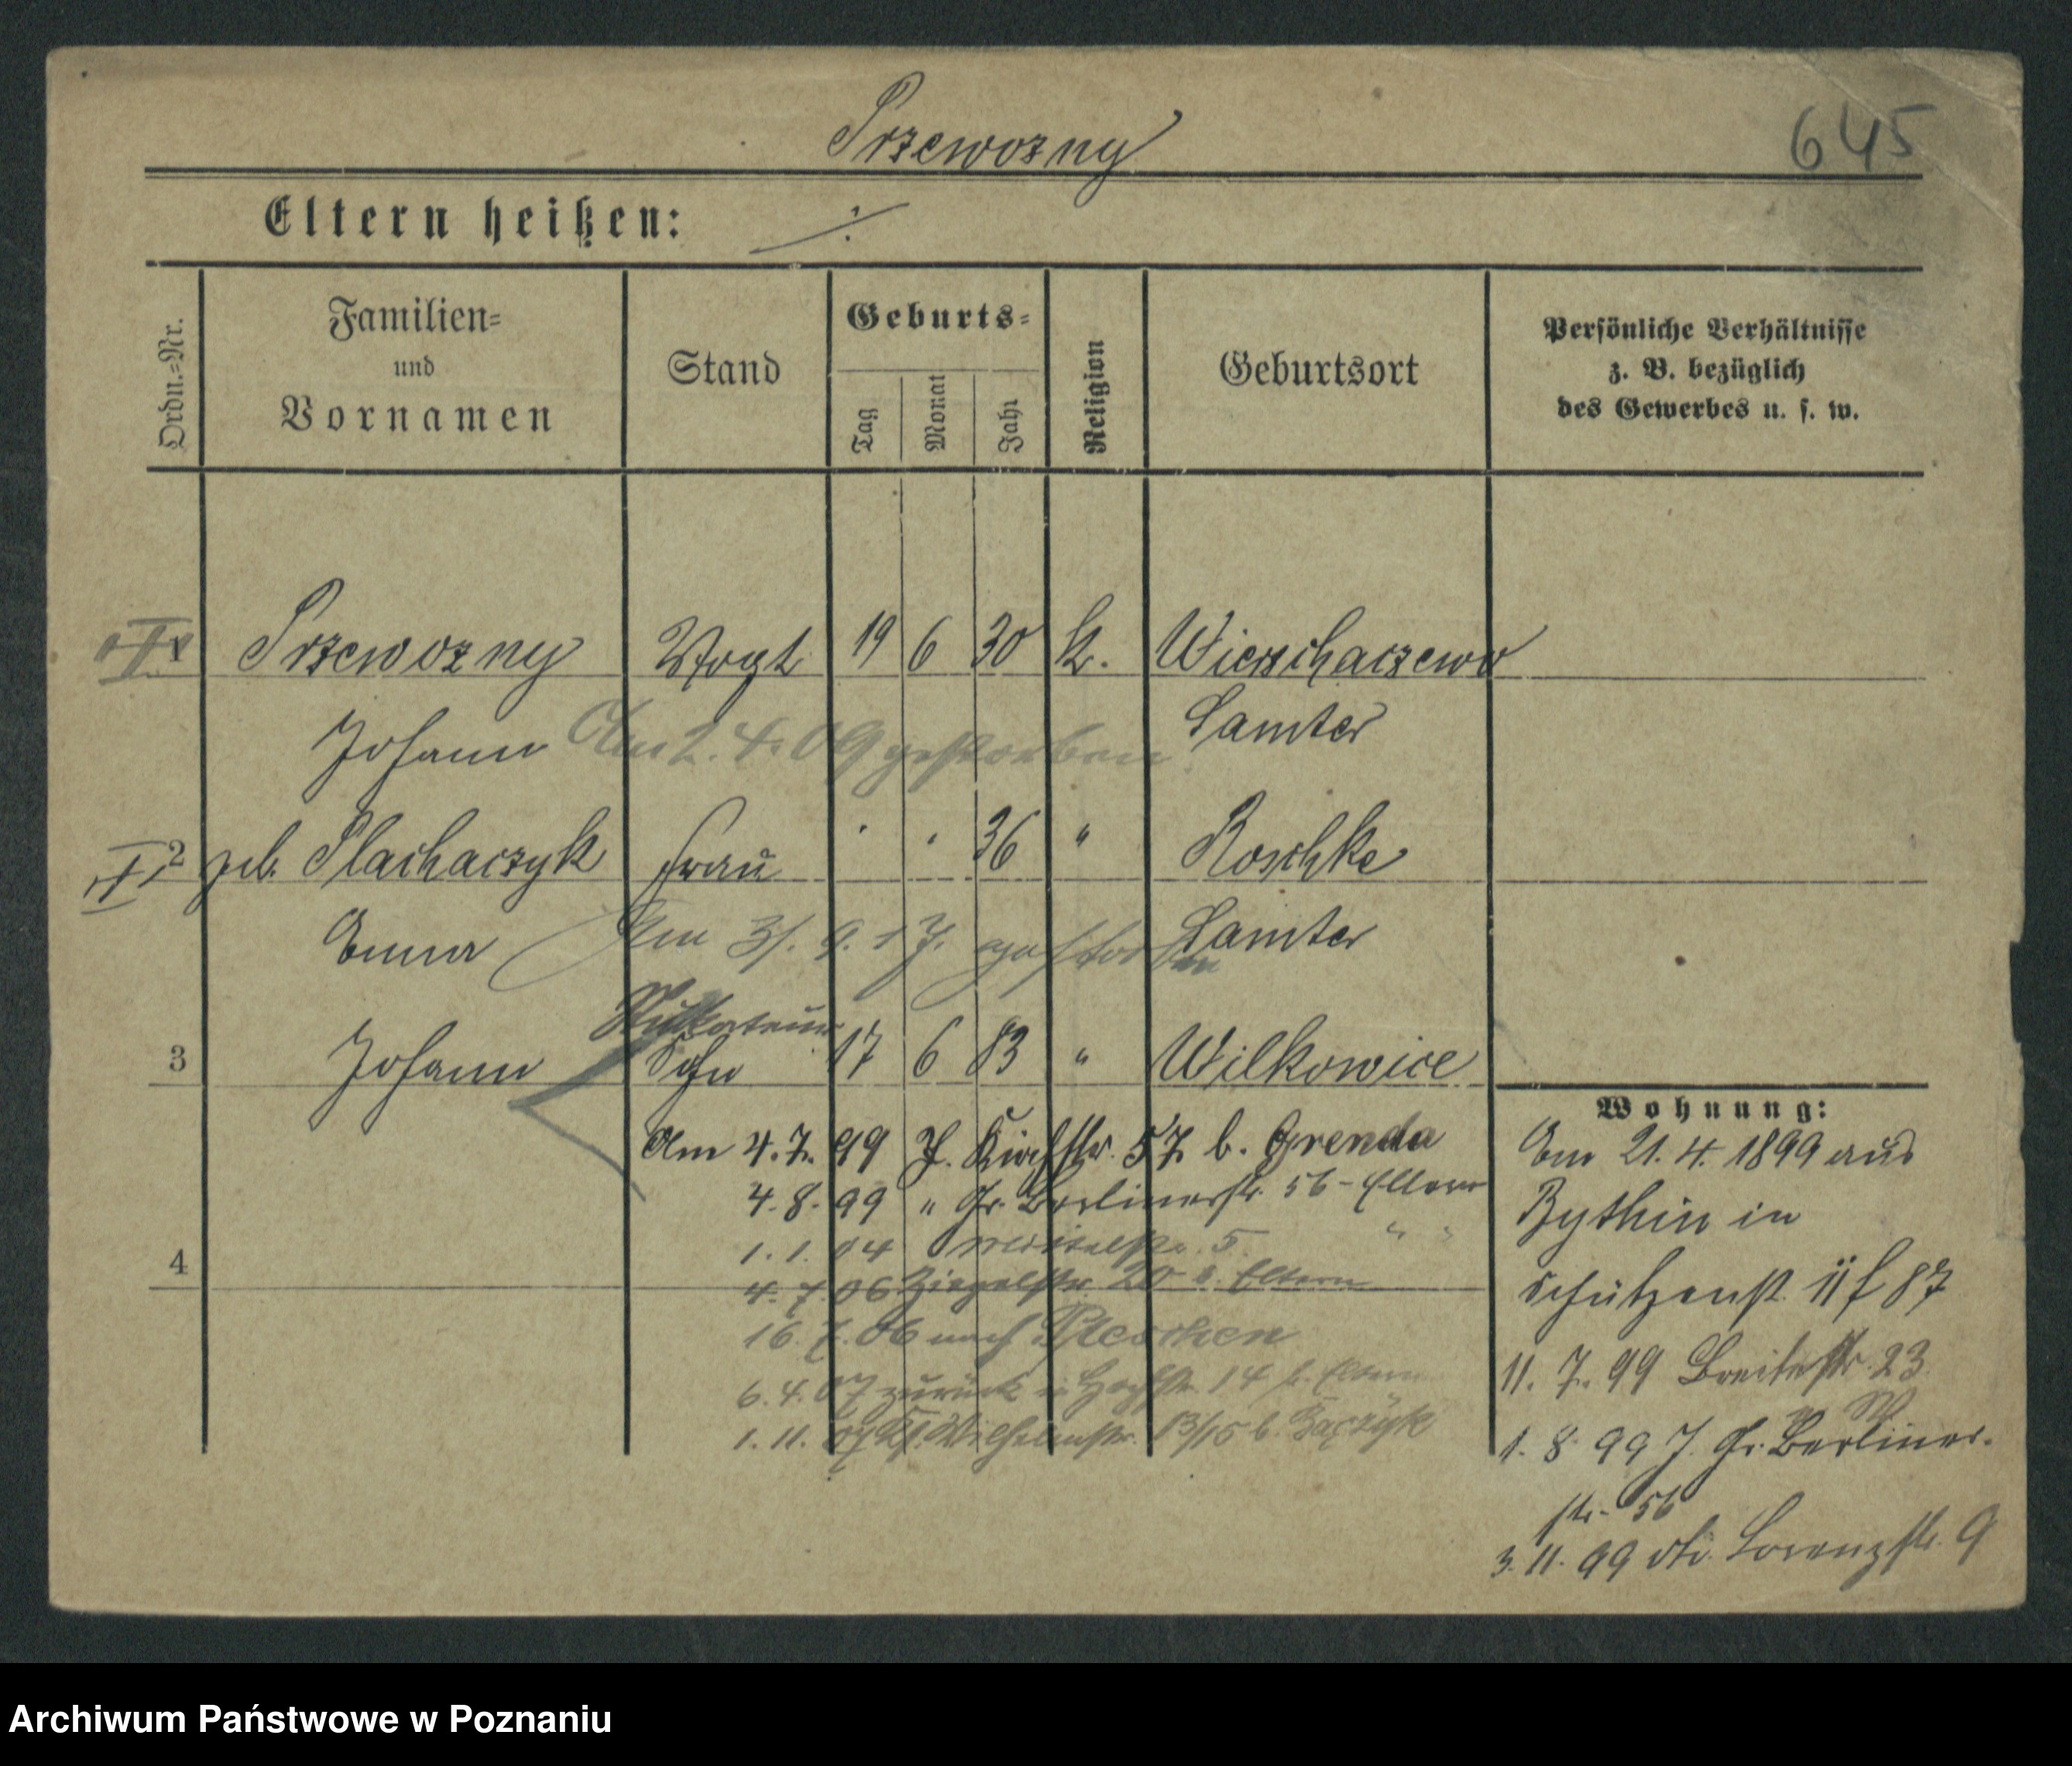 Przewozny
645
Eltern heißen: ÷
Ordn.-Nr.
Familien-
und
Vornamen
Stand
Geburts-
Tag
Monat
Jahr
Religion
Geburtsort
Persönliche Verhältnisse
z. B. bezüglich
des Gewerbes u. s. w.
1 Przewozny Vogt 19 6 30 k. Wierschaczewo
Johann Am 2. 4. 09 gestorben Samter
2 geb. Plachaczyk Frau " " 36 " Roschke
Am 31. 9. 17. gestorben Samter
Stukateur
3 Johann Sohn 17 6 83 " Wilkowice
Am 4. 7. 99 J. Kirchstr. 57 b. Grenda
4. 8. 99 " Gr. Berlinerstr. 56 - Eltern
1. 1. 04 5 " "
4
4. 7. 06 Ziegelstr. 20 b. Eltern
16. 7. 06 nach Pleschen
6. 4. 07 zurück 14 b. Eltern
1. 11. Wilhelmstr. 13/15 b.
Wohnung:
Am 21. 4. 1899 aus
Bythin in
Schützenst. 87
11. 7. 99 Breitestr. 23
1. 8. 99 J. Gr. Berliner-
str. 56
3. 11. 99 Lorenzstr. 9
Archiwum Państwowe w Poznaniu